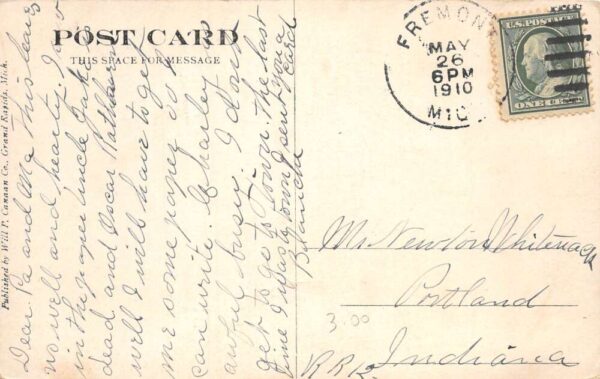 POST CARD
THIS SPACE FOR MESSAGE
Published by Will P. Canaan Co., Grand Rapids, Mich.
Dear Pa and Ma This leavs
us well and hearty. I so
in the paper Uncle Jake
dead and Oscar
well I will have to get
me some paper so I
can write. Charley is
awful busy. I dont
get to go to Town. The last
time I was to town I sent you a
card
Blanche
FREMONT
MAY
26
6PM
1910
MICH
U.S. POSTAGE
ONE CENT
Mr Newton Whitenack
Portland
Indiana
RR12
3.00